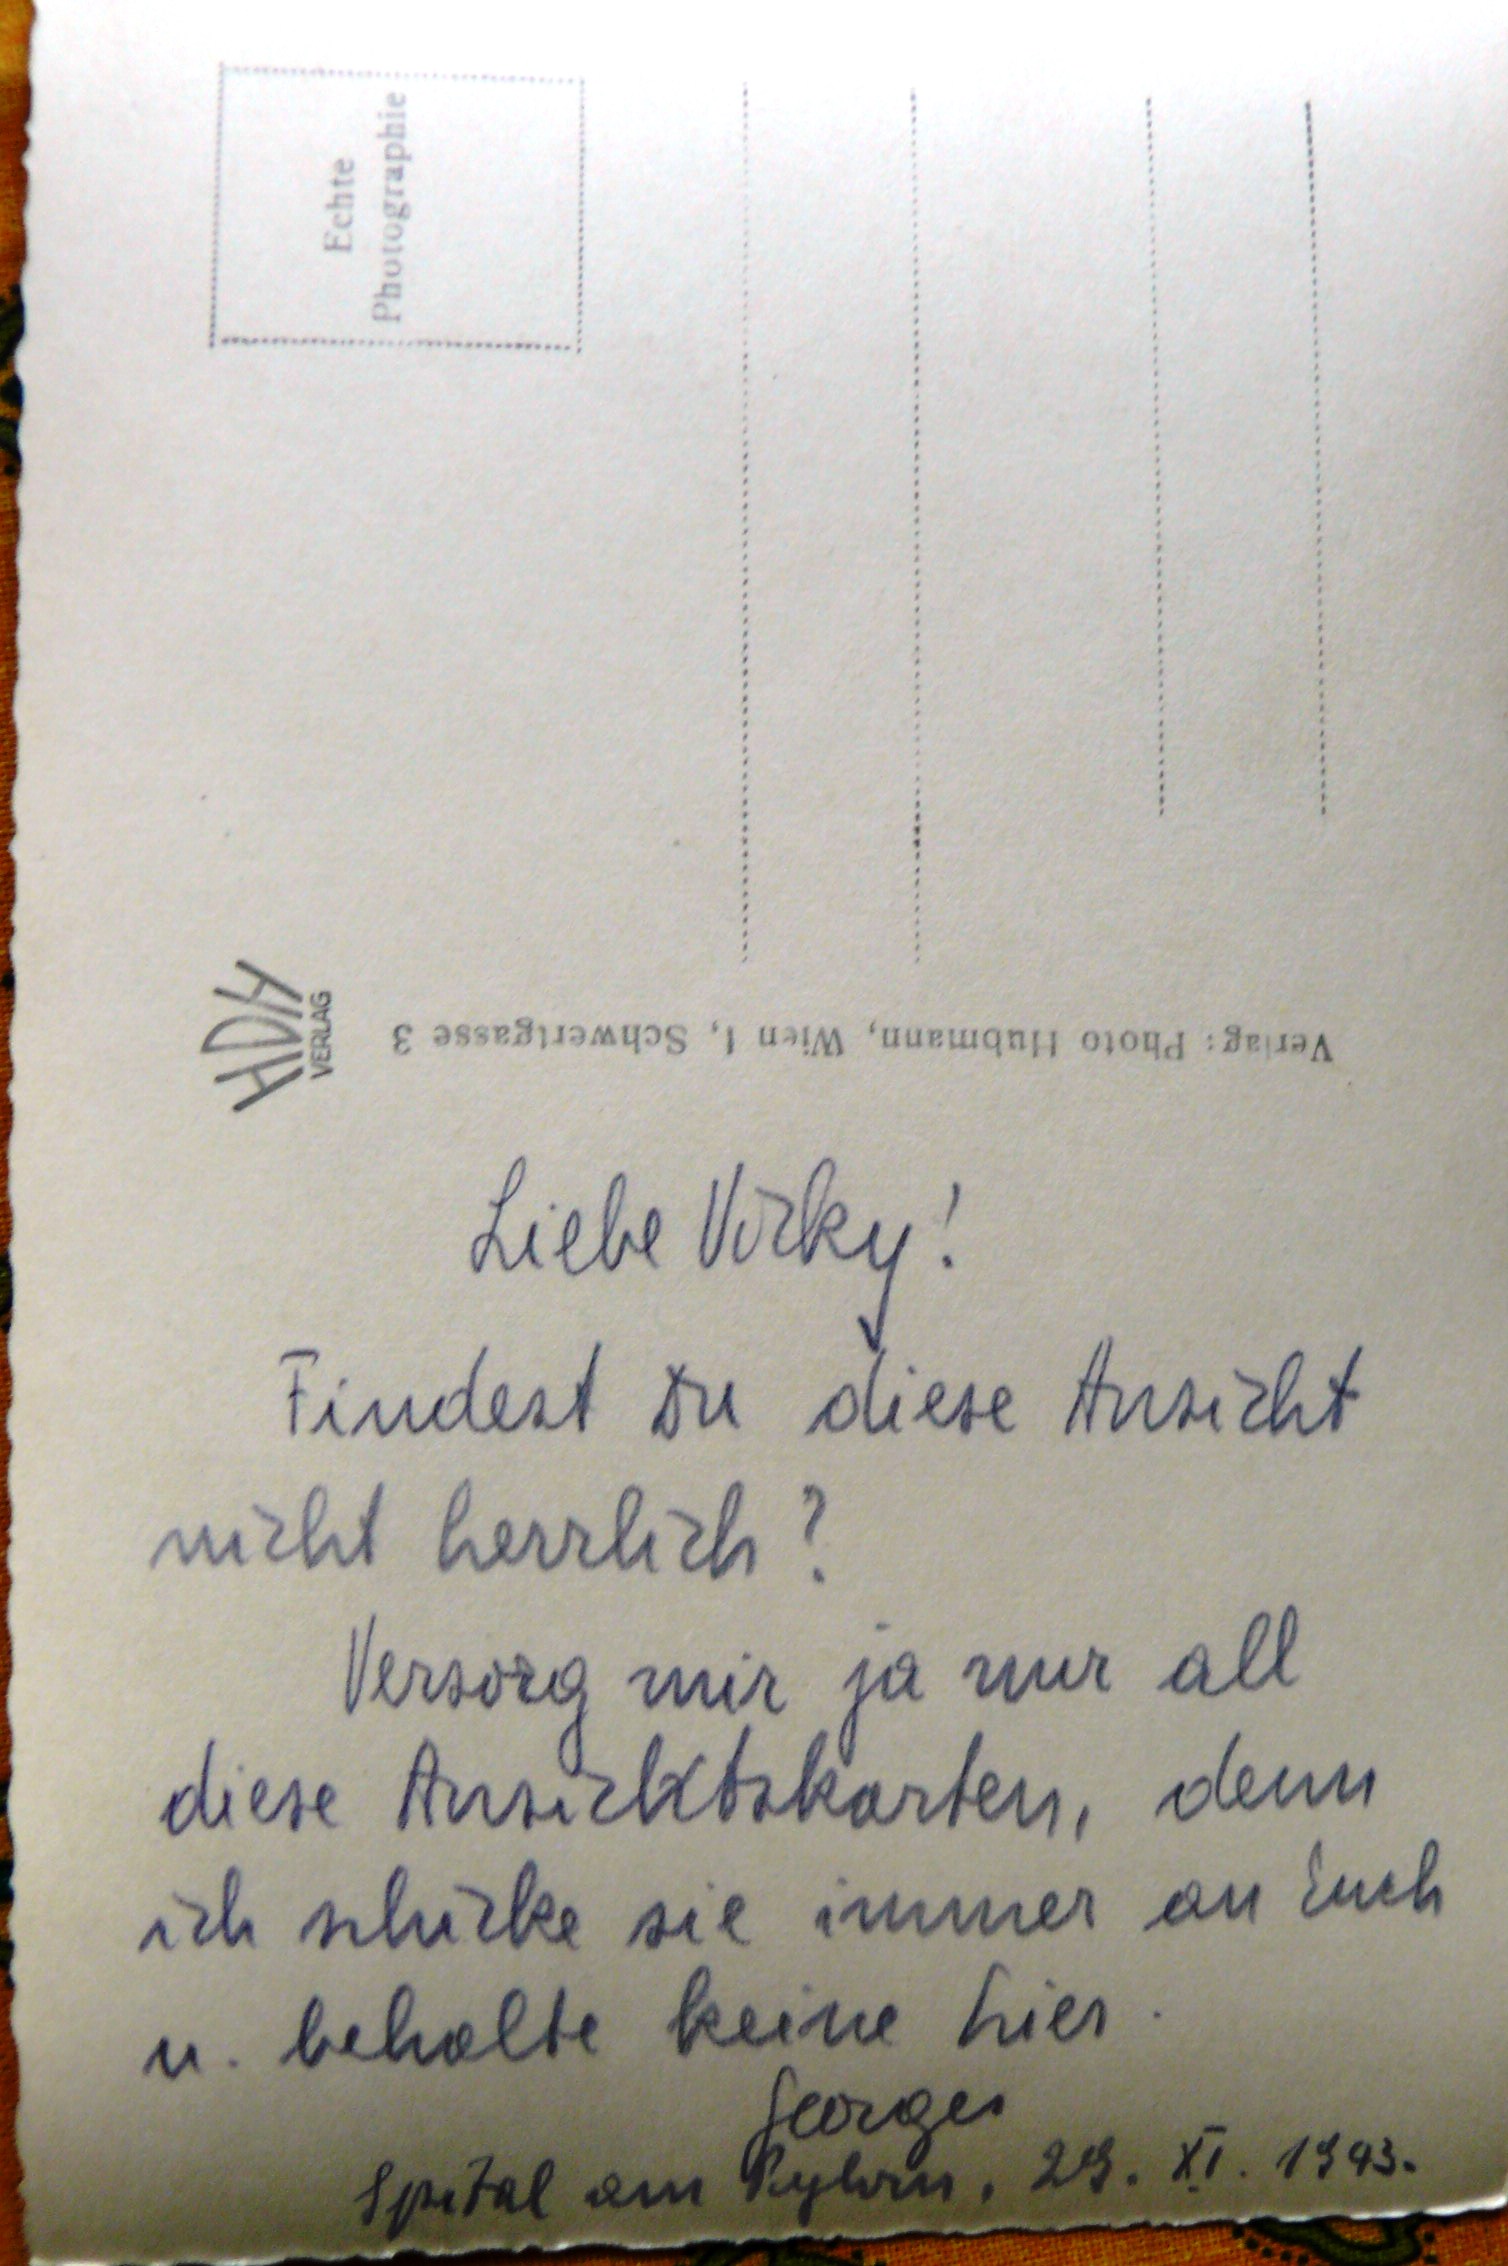 Echte
Photographie
HDH
VERLAG
Verlag: Photo Hubmann, Wien 1, Schwertgasse 3
Liebe Vicky!
Findest Du diese Ansicht
nicht herrlich?
Versorg mir ja nur all
diese Ansichtskarten, denn
ich schicke sie immer an Euch
u. behalte keine hier.
Georges
Spital am Pyhrn, 29. XI. 1943.